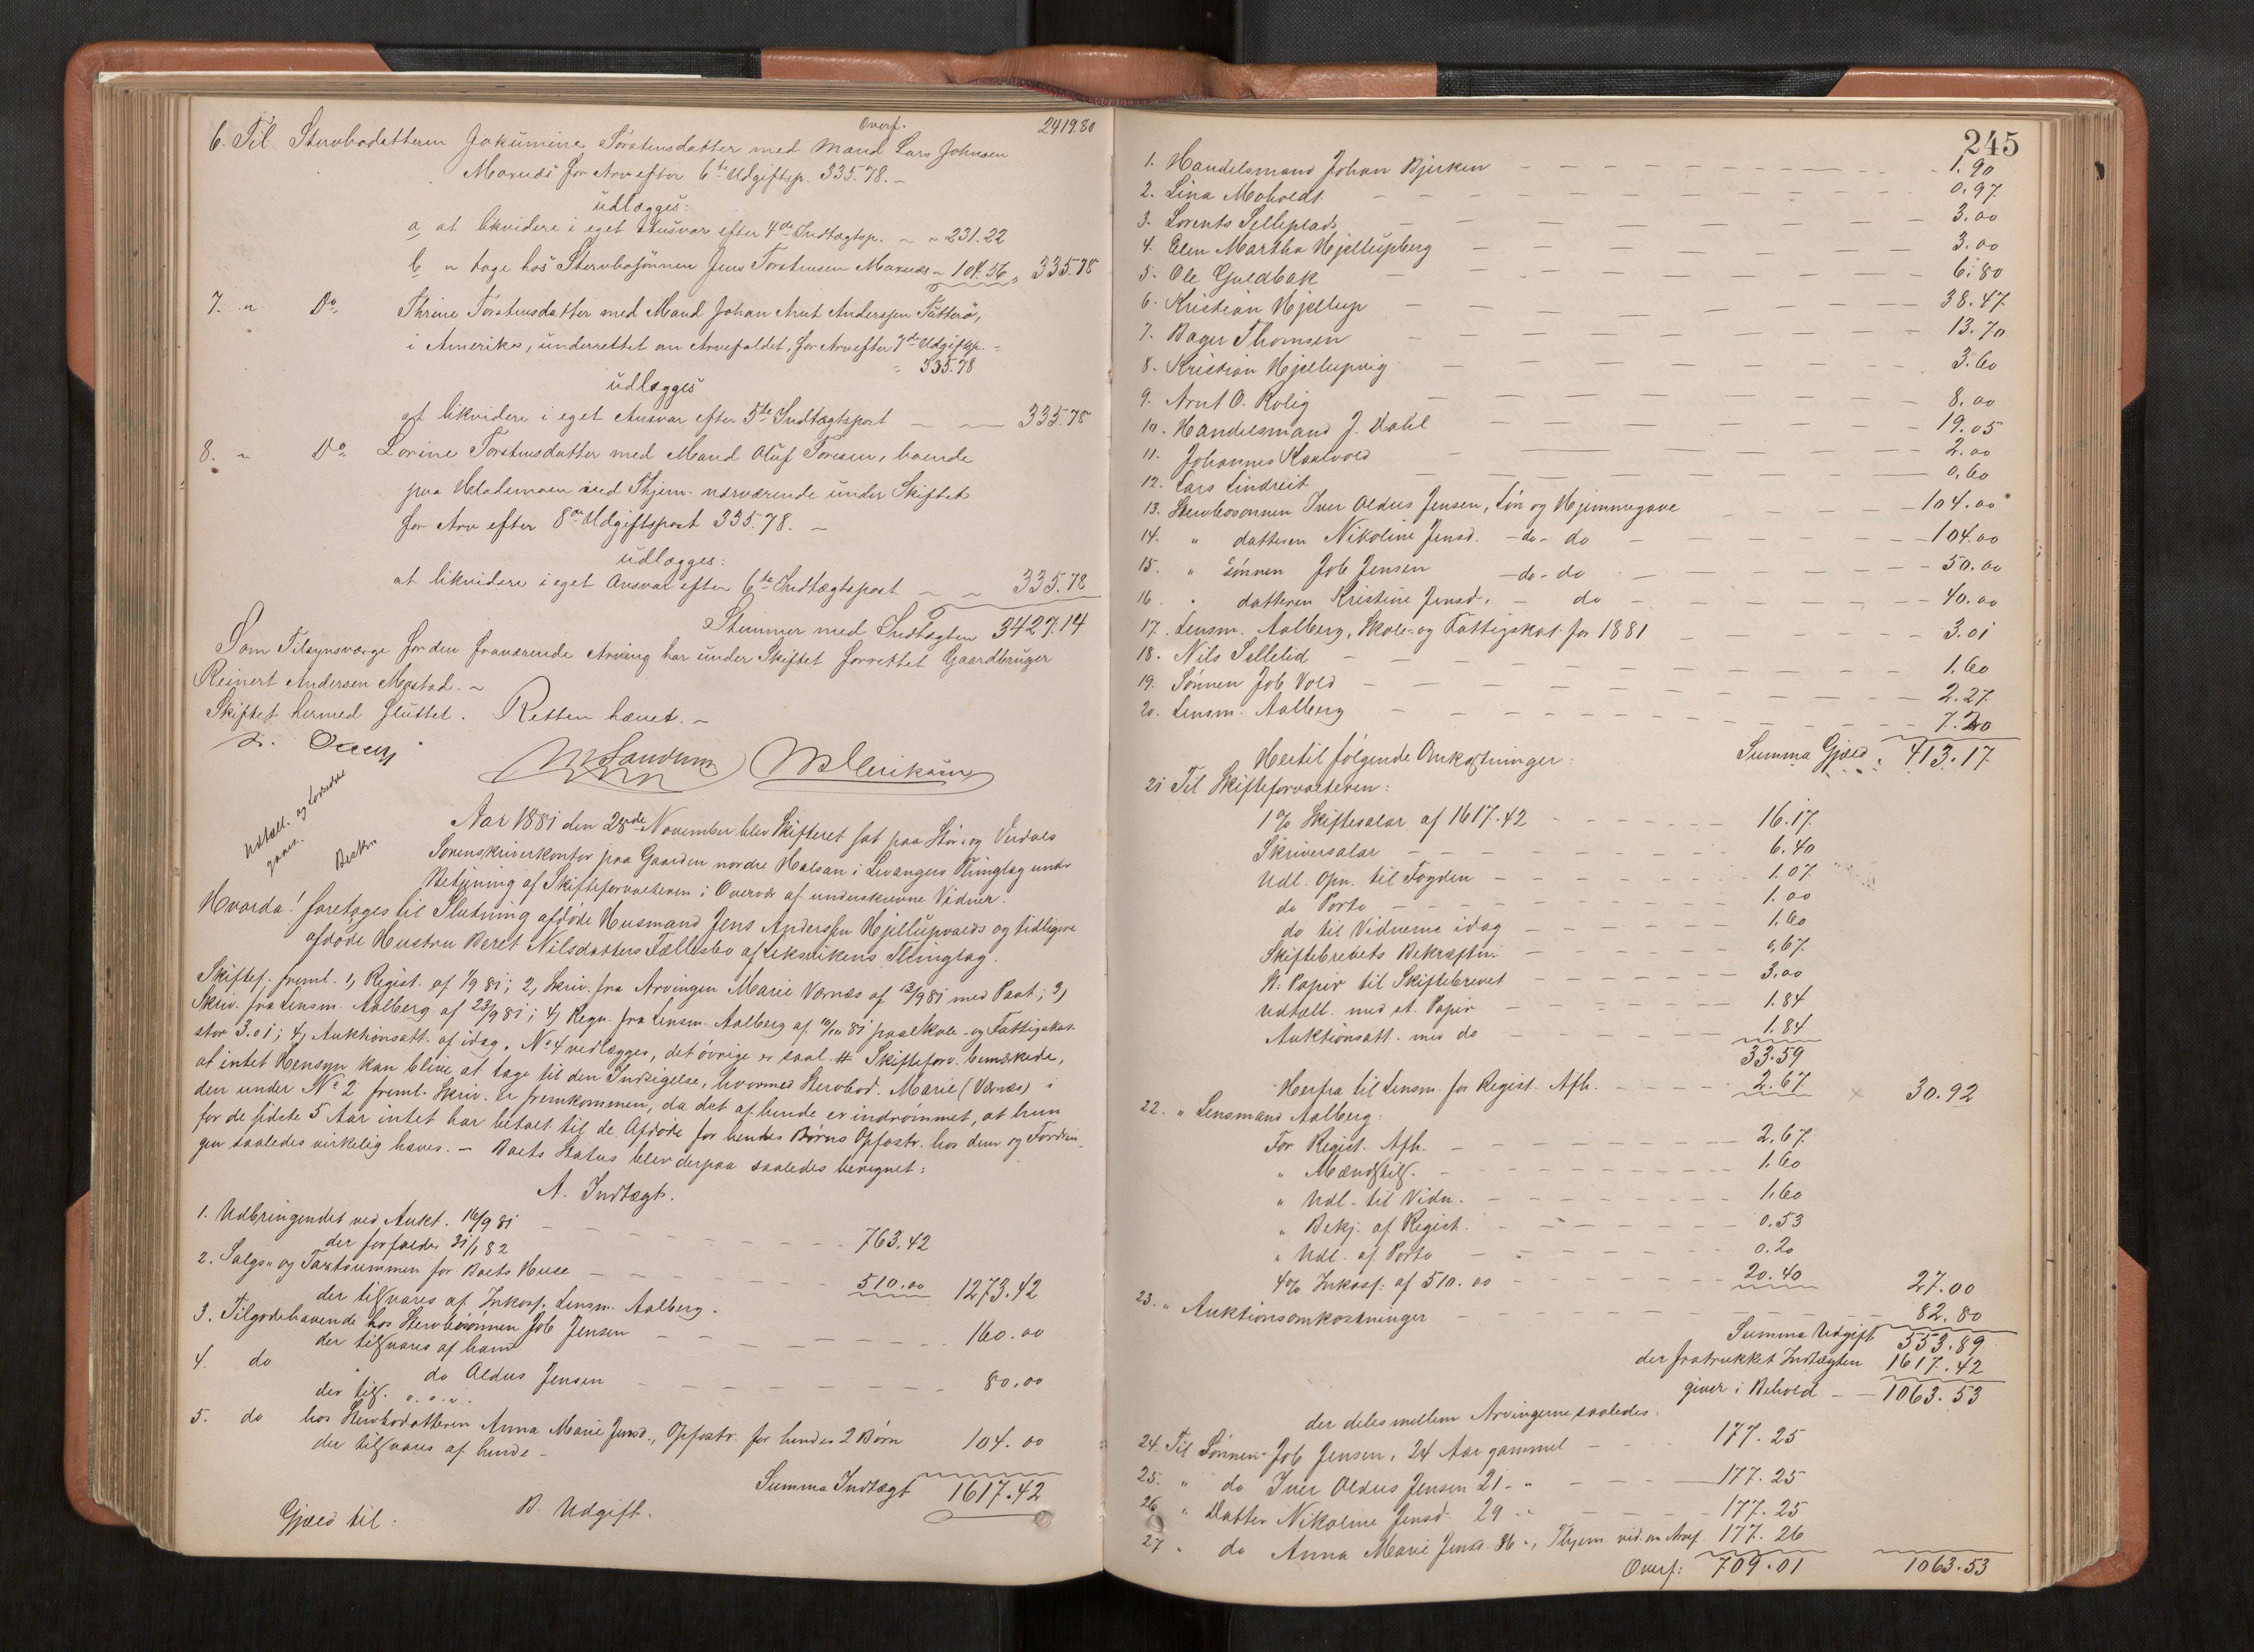 Overf. 2419.80
6. Til Stervbodatteren Jakumine Torstensdatter med Mand Lars Johnsen
Maxnæs for Arv efter 6te Udgiftsp. 335.78. –
udlægges:
a at likvidere i eget Ansvar efter 4de Indtægtsp. " " 231.22
b " tage hos Stervbosønnen Jens Torstensen Maxnæs " 104.56 " 335.78
7. " Do Thrine Torstensdatter med Mand Johan Arnt Anderssen Tutterø,
i Amerika, underrettet om Arvefaldet, for Arv efter 7de Udgiftsp. =
= 335.78
udlægges
at likvidere i eget Ansvar efter 5te Indtægtspost – – 335.78
8. " Do Lorine Torstensdatter med Mand Oluf Toresen, boende
paa Ladesmoen ved Thjem. nærværende under Skiftet
for Arv efter 8de Udgiftspost 335.78. –
udlægges:
at likvidere i eget Ansvar efter 6te Indtægtspost – – 335.78
Stemmer med Indtægten 3427.14
Som Tilsynsværge for den fraværende Arving har under Skiftet forrettet Gaardbruger
Reinert Andersen Mostad. –
Skiftet hermed sluttet. Retten hævet. –
Udtall. og Lovende
gaves.
Beskr.
Aar 1881 den 28de November blev Skifteret sat paa Stør- og Verdals
Sorenskriverkontor paa Gaarden nordre Halsan i Levangers Thinglag under
Betjening af Skifteforvalteren i Overvær af underskrevne Vidner.
Hvorda! foretoges til Slutning afdøde Husmand Jens Anderssen Hjellupvalds og tidligere
afdøde Hustru Beret Nilsdatters Fællesbo af Leksvikens Thinglag.
Skiftef. freml. 1, Regist. af 1/9 81; 2, Skriv. fra Arvingen Marie Værnæs af 12/9 81 med Paat; 3,
Skriv. fra Lensm. Aalberg af 23/9 81; 4, Regn. fra Lensm. Aalberg af 11/11 81 paa Skole- og Fattigskat
stor 3.01; 4, Auktionsatt. af idag. No 4 vedlægges, det øvrige er saal. # Skifteforv. bemærkede,
at intet Hensyn kan blive at tage til den Indsigelse, hvormed Stervbod. Marie (Værnæs) i
den under No 2 freml. Skriv. er fremkommen, da det af hende er indrømmet, at hun
for de sidste 5 Aar intet har betalt til de Afdøde for hendes Børns Opfostr. hos dem og Fordrin-
gen saaledes virkelig haves. – Boets Status blev derpaa saaledes beregnet:
A. Indtægt.
1. Udbringendet ved Aukt. 16/9 81 – – – 763.42
der forfalder 31/1 82
2. Salgs- og Taxtsummen for Boets Huse – – – 510.00 1273.42
der tilsvares af Inkass. Lensm. Aalberg.
3. Tilgodehavende hos Stervbosønnen Job Jensen – – – 160.00
der tilsvares af ham
4. do " do Aldus Jensen – – – 80.00
der tils. o. s. v.
5. do hos Stervbodatteren Anna Marie Jensd., Opfostr. for hendes 2 Børn 104.00
der tilsvares af hende –
Summa Indtægt 1617.42
B. Udgift.
Gjæld til:
245
1. Handelsmand Johan Bjerken – – – 1.90
2. Lina Moholdt – – – 0.97
3. Lorents Selleplads – – – 3.00
4. Elen Martha Hjellupberg – – – 3.00
5. Ole Guldbak – – – 6.80
6. Kristian Hjellup – – – 38.47
7. Bager Thomsen – – – 13.70
8. Kristian Hjellupvig – – – 3.60
9. Arnt O. Rolig – – – 8.00
10. Handelsmand J. Dahl – – – 19.05
11. Johannes Kaalvold – – – 2.00
12. Lars Lindreit – – – 0.60
13. Stervbosønnen Iver Oldus Jensen, Løn og Hjemmegave – – – 104.00
14. " datteren Nikoline Jensd. – do – do – – – 104.00
15. " Sønnen Job Jensen – do – do – – – 50.00
16. " datteren Kristine Jensd. – do – – – 40.00
17. Lensm. Aalberg, Skole- og Fattigskat for 1881 – – – 3.01
18. Nils Sellelid – – – 1.60
19. Sønnen Job Vold – – – 2.27
20. Lensm. Aalberg – – – 7.20
Summa Gjæld 413.17
Hertil følgende Omkostninger:
21 Til Skifteforvalteren:
1% Skiftesalær af 1617.42 – – – 16.17
Skriversalær – – – 6.40
Udl. Opn. til Fogden – – – 1.07
do Porto – – – 1.00
do til Vidnerne idag – – – 1.60
Skiftebrevets Bekræftn. – – – 0.67
St. Papir til Skiftebrevet – – – 3.00
Udtall. med st. Papir – – – 1.84
Auktionsatt. med do – – – 1.84
33.59
Herfra til Lensm. for Regist. Afh. – – – 2.67 × 30.92
22. " Lensmand Aalberg:
For Regist. Afh. – – – 2.67
" Mændstils. – – – 1.60
" Udl. til Vidn. – – – 1.60
" Bekj. af Regist. – – – 0.53
" Udl. af Porto – – – 0.20
4% Inkass. af 510.00 – – – 20.40 27.00
23. " Auktionsomkostninger – – – 82.80
Summa Udgift 553.89
der fratrukket Indtægten 1617.42
giver i Behold – – 1063.53
der deles mellem Arvingerne saaledes:
24. Til Sønnen Job Jensen, 24 Aar gammel – – 177.25
25. " do Iver Oldus Jensen 21 – " – – 177.25
26. " Datter Nikoline Jensd. 29 – " – – 177.25
27 " do Anna Marie Jensd. 36 – ", Thjem vid. om Arvef. 177.26
Overf: 709.01 1063.53